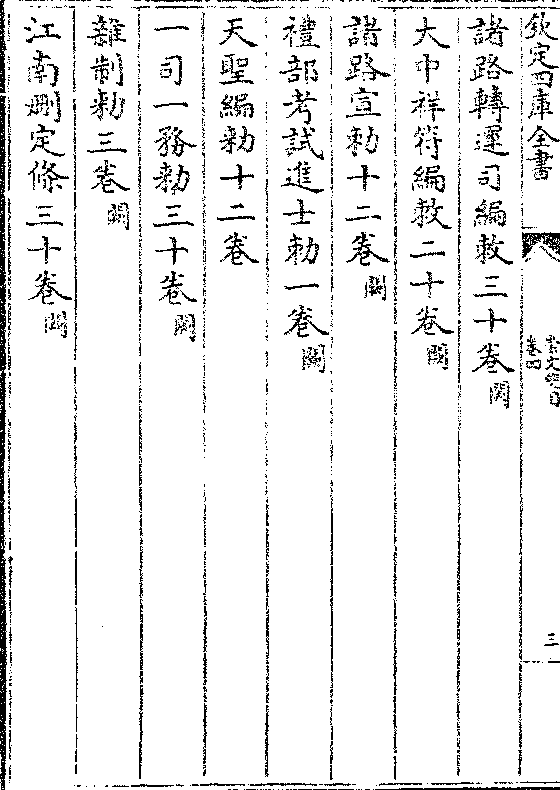 欽定四庫全書
崇文總目
卷四
三
諸路轉運司編敕三十卷闕
大中祥符編敕二十卷闕
諸路宣勅十二卷闕
禮部考試進士勅一卷闕
天聖編勅十二卷
一司一務勅三十卷闕
雜制勅三卷闕
江南刪定條三十卷闕